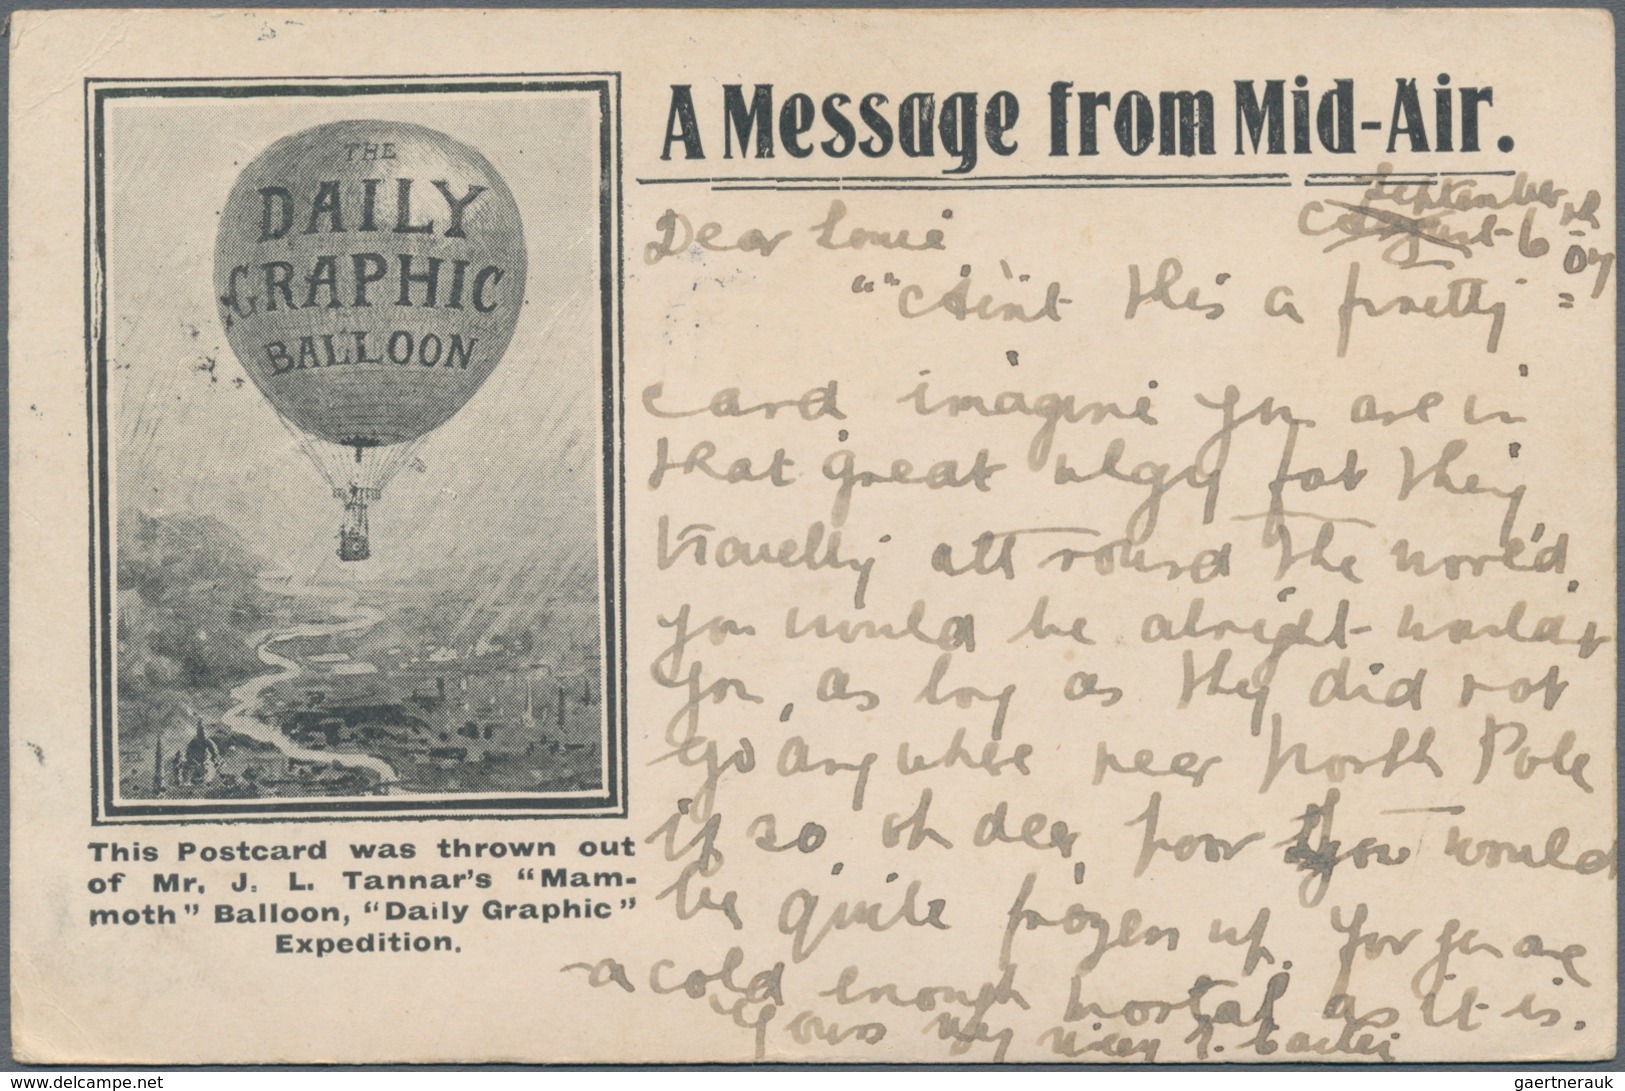 A Message from Mid-Air.
THE
DAILY
GRAPHIC
BALLOON
This Postcard was thrown out
of Mr. J. L. Tannar's "Mam-
moth" Balloon, "Daily Graphic"
Expedition.
September
August 6th 07
Dear Louie
"" Ain't this a pretty =
card imagine you are in
that great ulgy fat thing
travelly all round the world.
you would be alright wouldn't
you, as long as they did not
go anywhere neer North Pole
if so, oh deer, poor you would
be quite frozen up. For you are
a cold enough mortal as it is.
Yours
www.delcampe.net
gaertnerauk